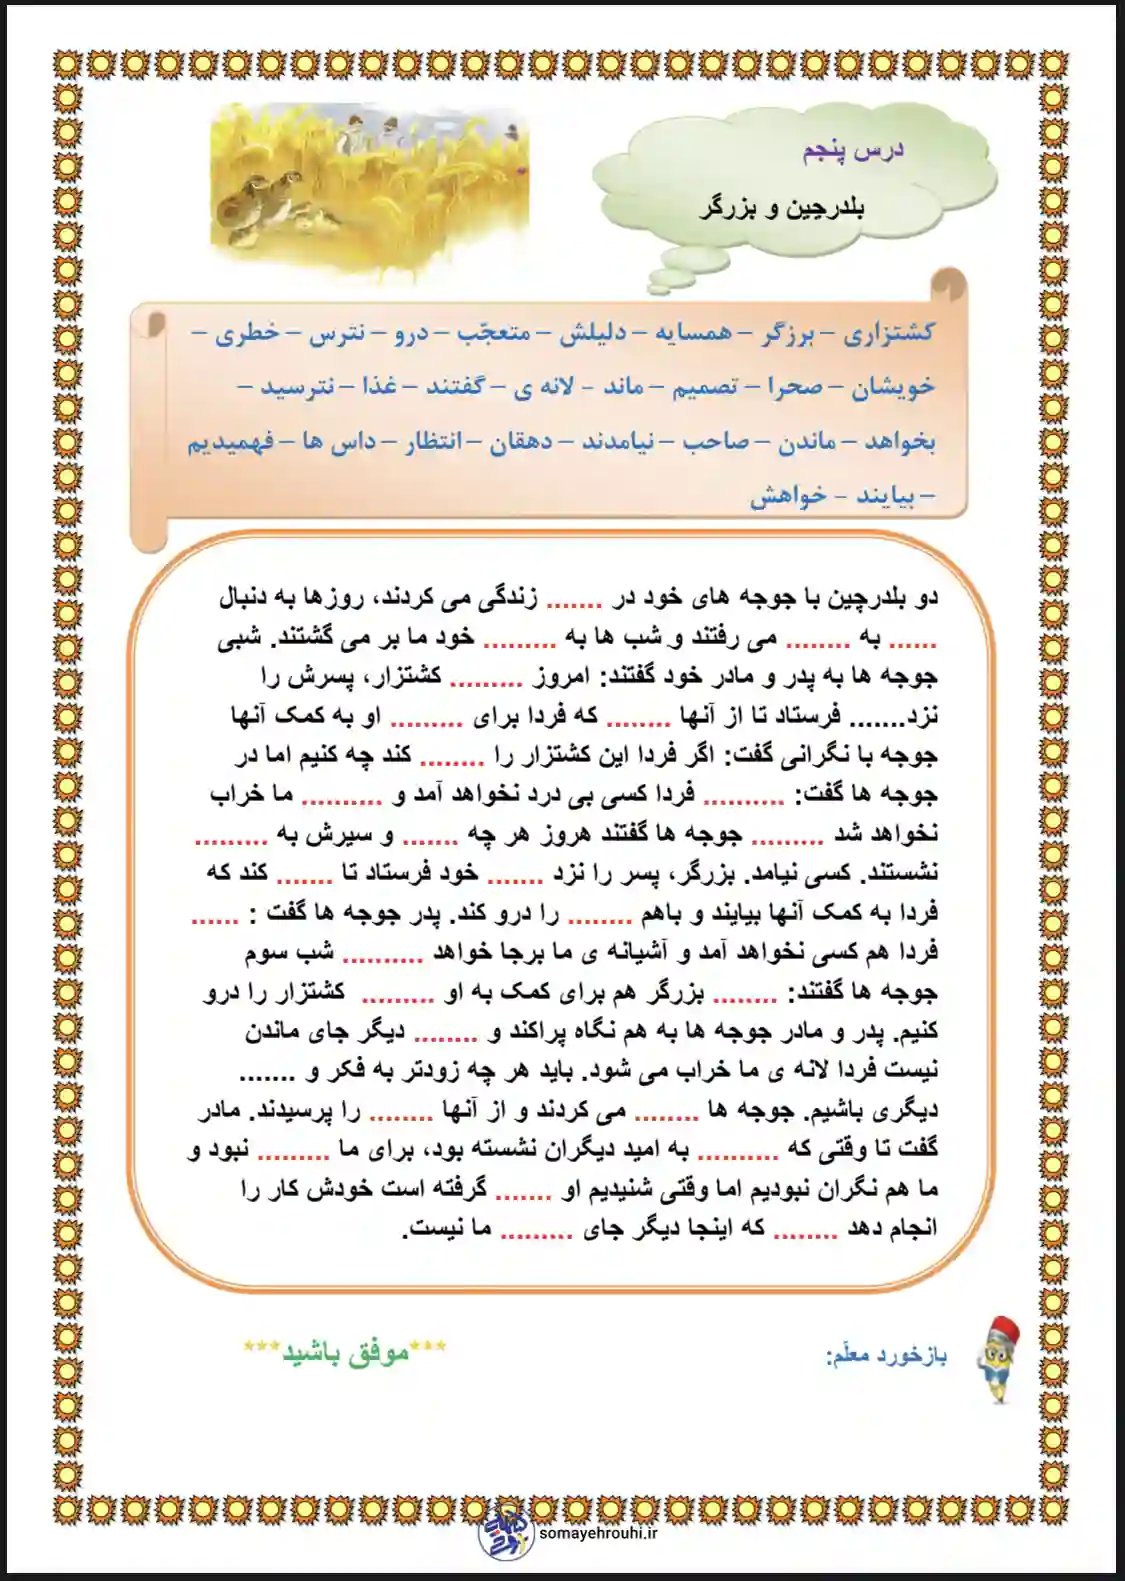 درس پنجم
بلدرچین و بزرگر
کشتزاری – برزگر – همسایه – دلیلش – متعجّب – درو – نترس – خطری –
خویشان – صحرا – تصمیم – ماند - لانه ی – گفتند – غذا – نترسید –
بخواهد – ماندن – صاحب – نیامدند – دهقان – انتظار – داس ها – فهمیدیم
– بیایند - خواهش
دو بلدرچین با جوجه های خود در ....... زندگی می کردند، روزها به دنبال
...... به ........ می رفتند و شب ها به ......... خود ما بر می گشتند. شبی
جوجه ها به پدر و مادر خود گفتند: امروز ......... کشتزار، پسرش را
نزد....... فرستاد تا از آنها ........ که فردا برای ......... او به کمک آنها
جوجه با نگرانی گفت: اگر فردا این کشتزار را ........ کند چه کنیم اما در
جوجه ها گفت: .......... فردا کسی بی درد نخواهد آمد و .......... ما خراب
نخواهد شد ......... جوجه ها گفتند هروز هر چه ....... و سیرش به .........
نشستند. کسی نیامد. بزرگر، پسر را نزد ....... خود فرستاد تا ....... کند که
فردا به کمک آنها بیایند و باهم ........ را درو کند. پدر جوجه ها گفت : ......
فردا هم کسی نخواهد آمد و آشیانه ی ما برجا خواهد .......... شب سوم
جوجه ها گفتند: ........ بزرگر هم برای کمک به او ......... کشتزار را درو
کنیم. پدر و مادر جوجه ها به هم نگاه پراکند و ........ دیگر جای ماندن
نیست فردا لانه ی ما خراب می شود. باید هر چه زودتر به فکر و .......
دیگری باشیم. جوجه ها ........ می کردند و از آنها ........ را پرسیدند. مادر
گفت تا وقتی که .......... به امید دیگران نشسته بود، برای ما ......... نبود و
ما هم نگران نبودیم اما وقتی شنیدیم او ....... گرفته است خودش کار را
انجام دهد ........ که اینجا دیگر جای ......... ما نیست.
بازخورد معلّم:
***موفق باشید***
somayehrouhi.ir